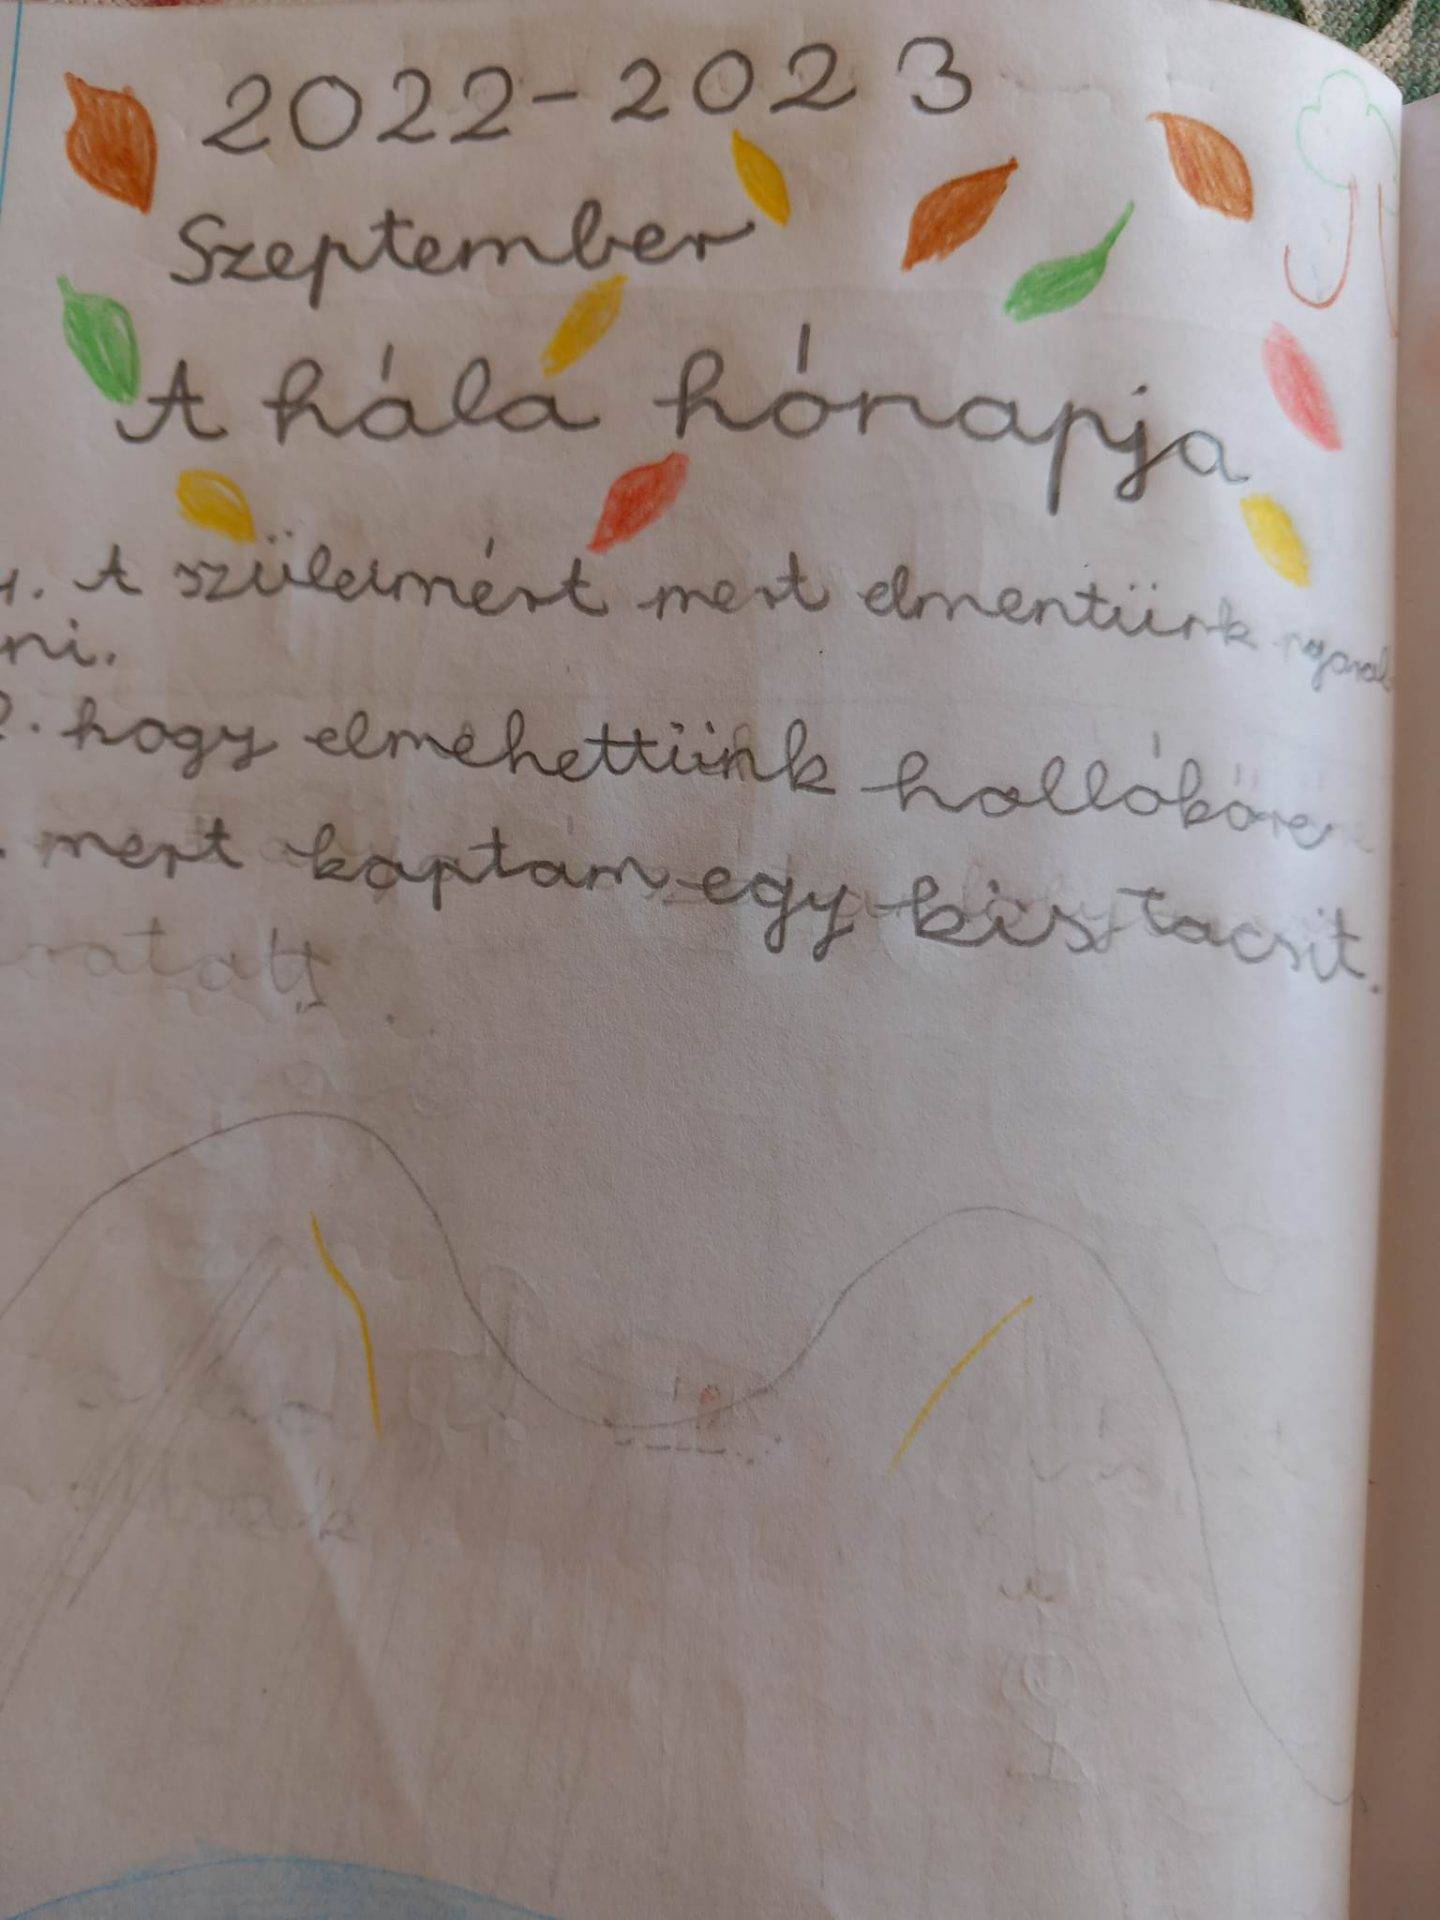 2022-2023
Szeptember
A hála hónapja
1. A szüleimért mert elmentünk
ni.
2. hogy elmehettünk hollókőre
. mert kaptam egy kis tacsit.